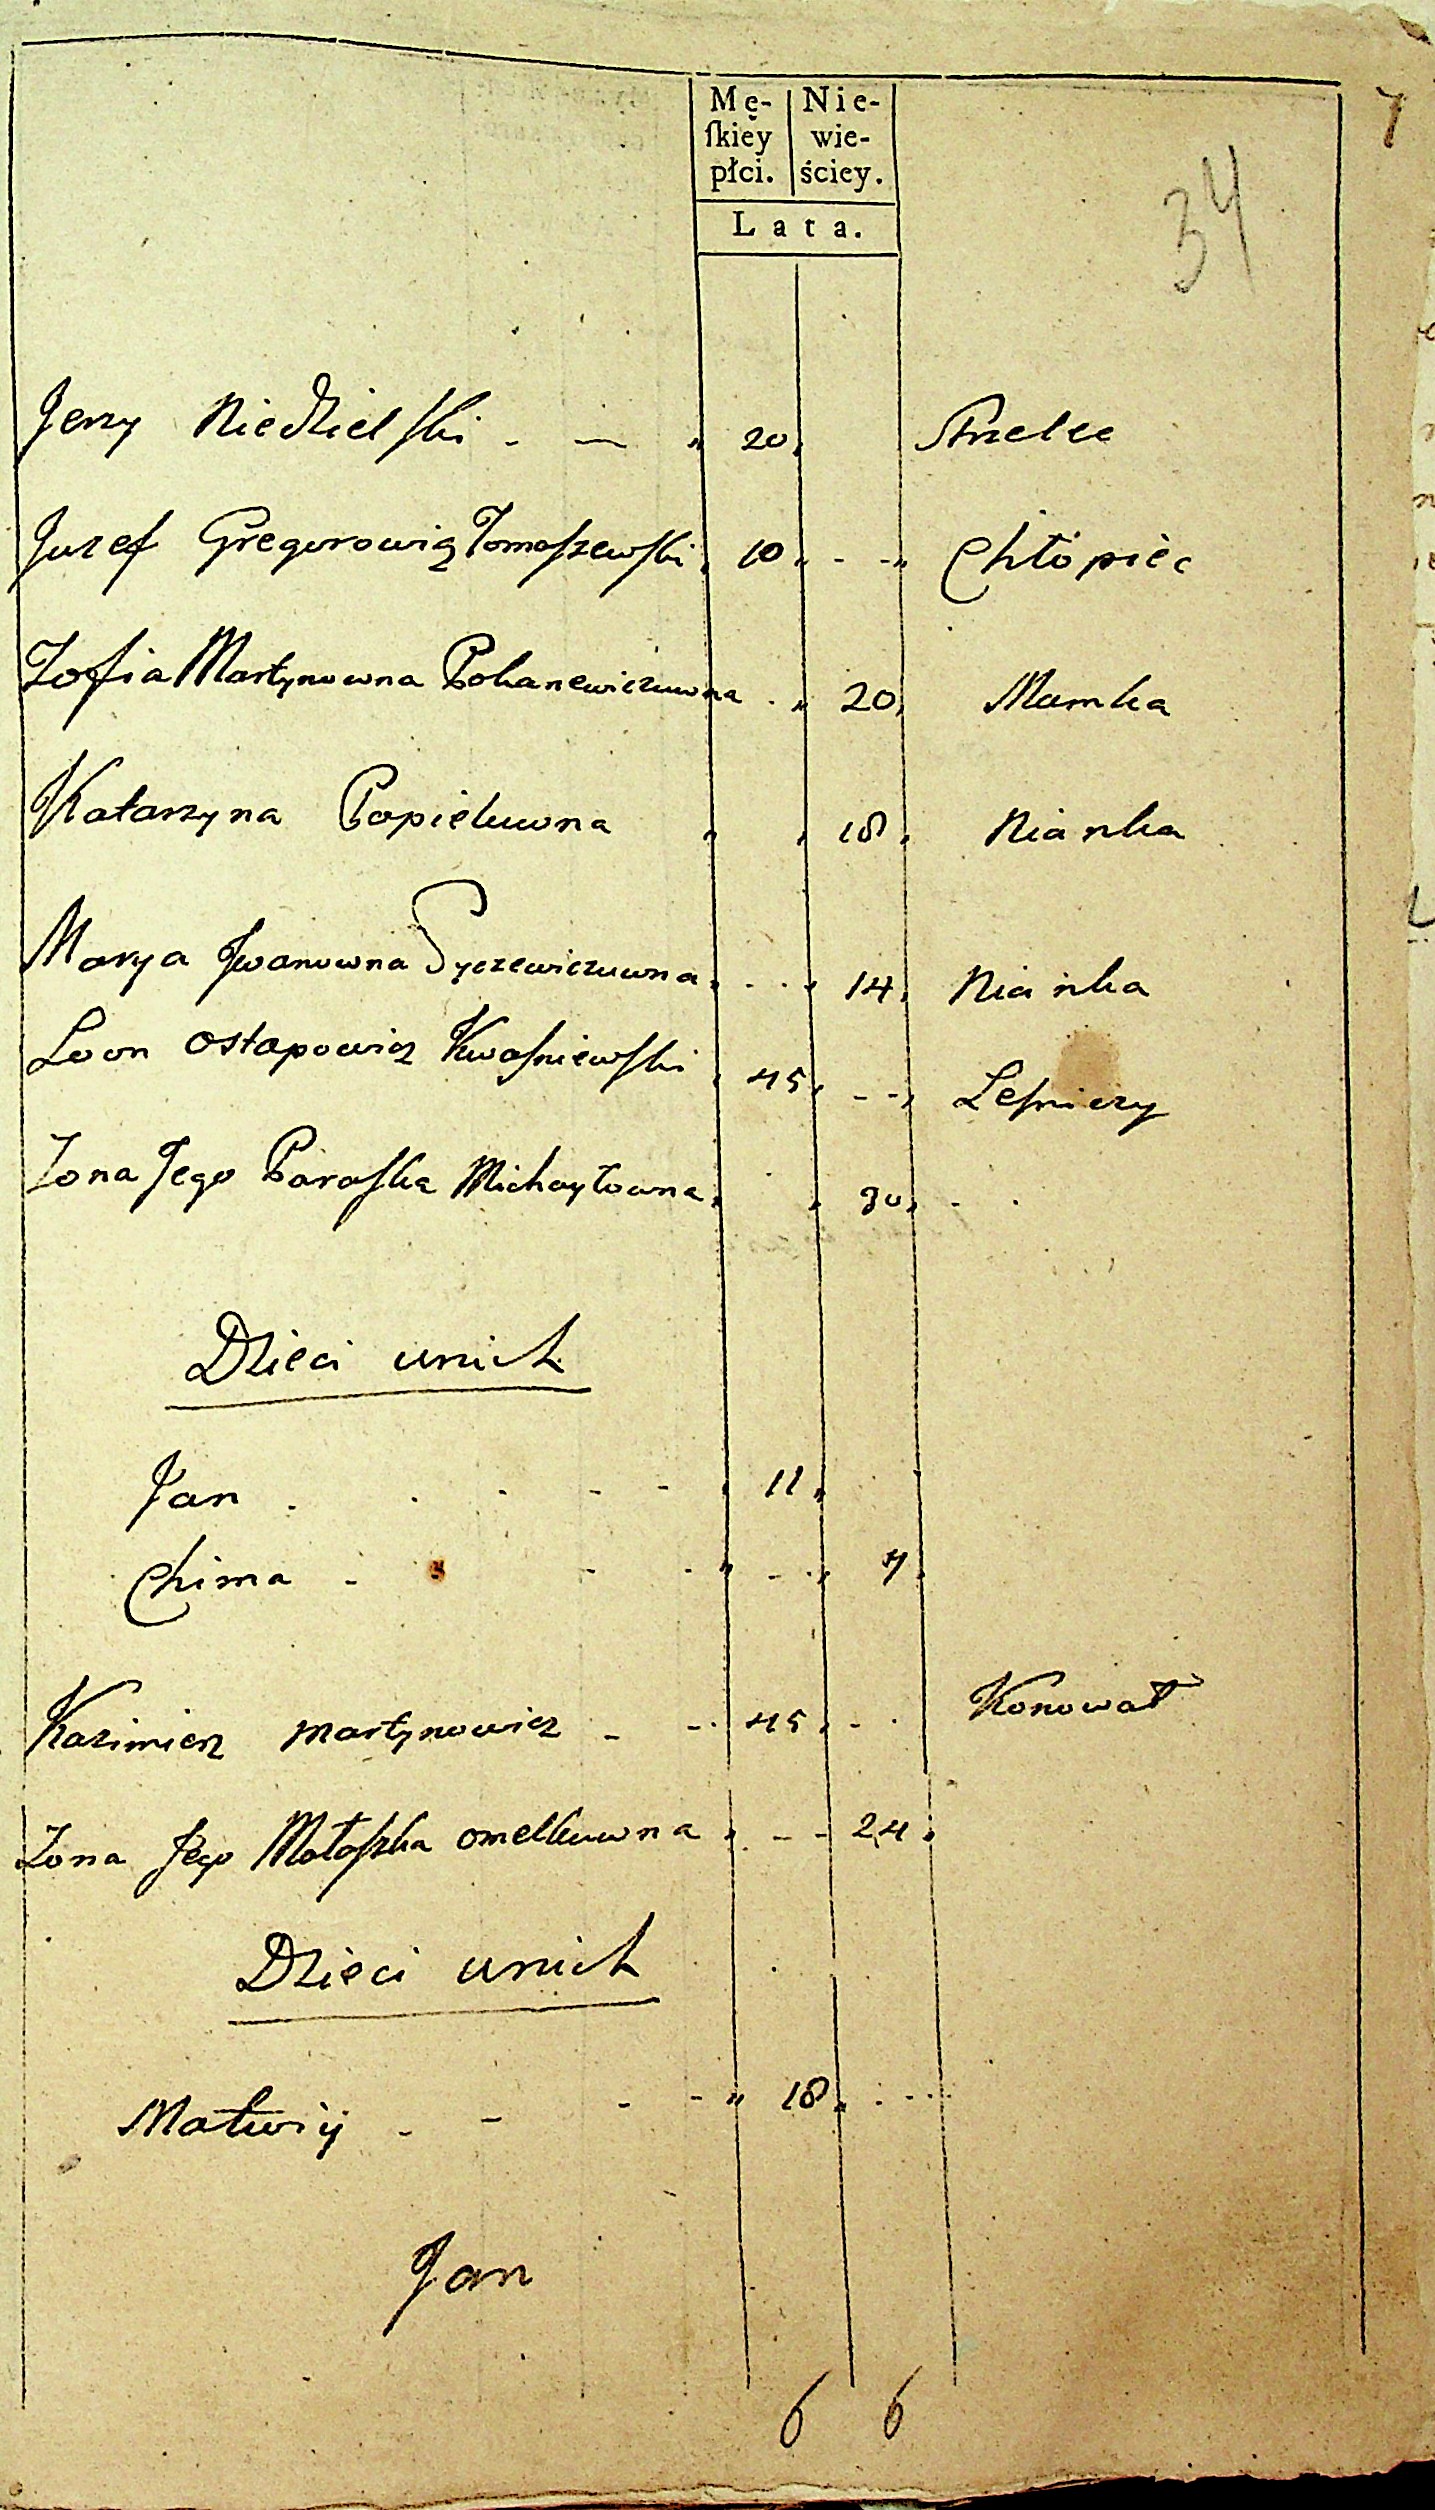 7
34
Mę- Nie-
ſkiey wie-
płci. ściey.
Lata.
Jerzy Niedzielſki 20 Strzelec
Juzef Gregorowicz Tomaſzewſki 10 Chłopiec
Zofia Martynowna Pohanewiczuwna 20 Mamka
Katarzyna Popieluwna 18 Nianka
Marya Jwanowna Pyczewiczuwna 14 Nianka
Leon Ostapowicz Kwaſniewſki 45 Leſniczy
Zona Jego Paraſka Michayłowna 30
Dzieci unich
Jan 11
Chima 7
Kazimierz Martynowicz 45 Konował
Zona Jego Motaſzka omelkuwna 24
Dzieci unich
Matwiy 18
Jan
6 6